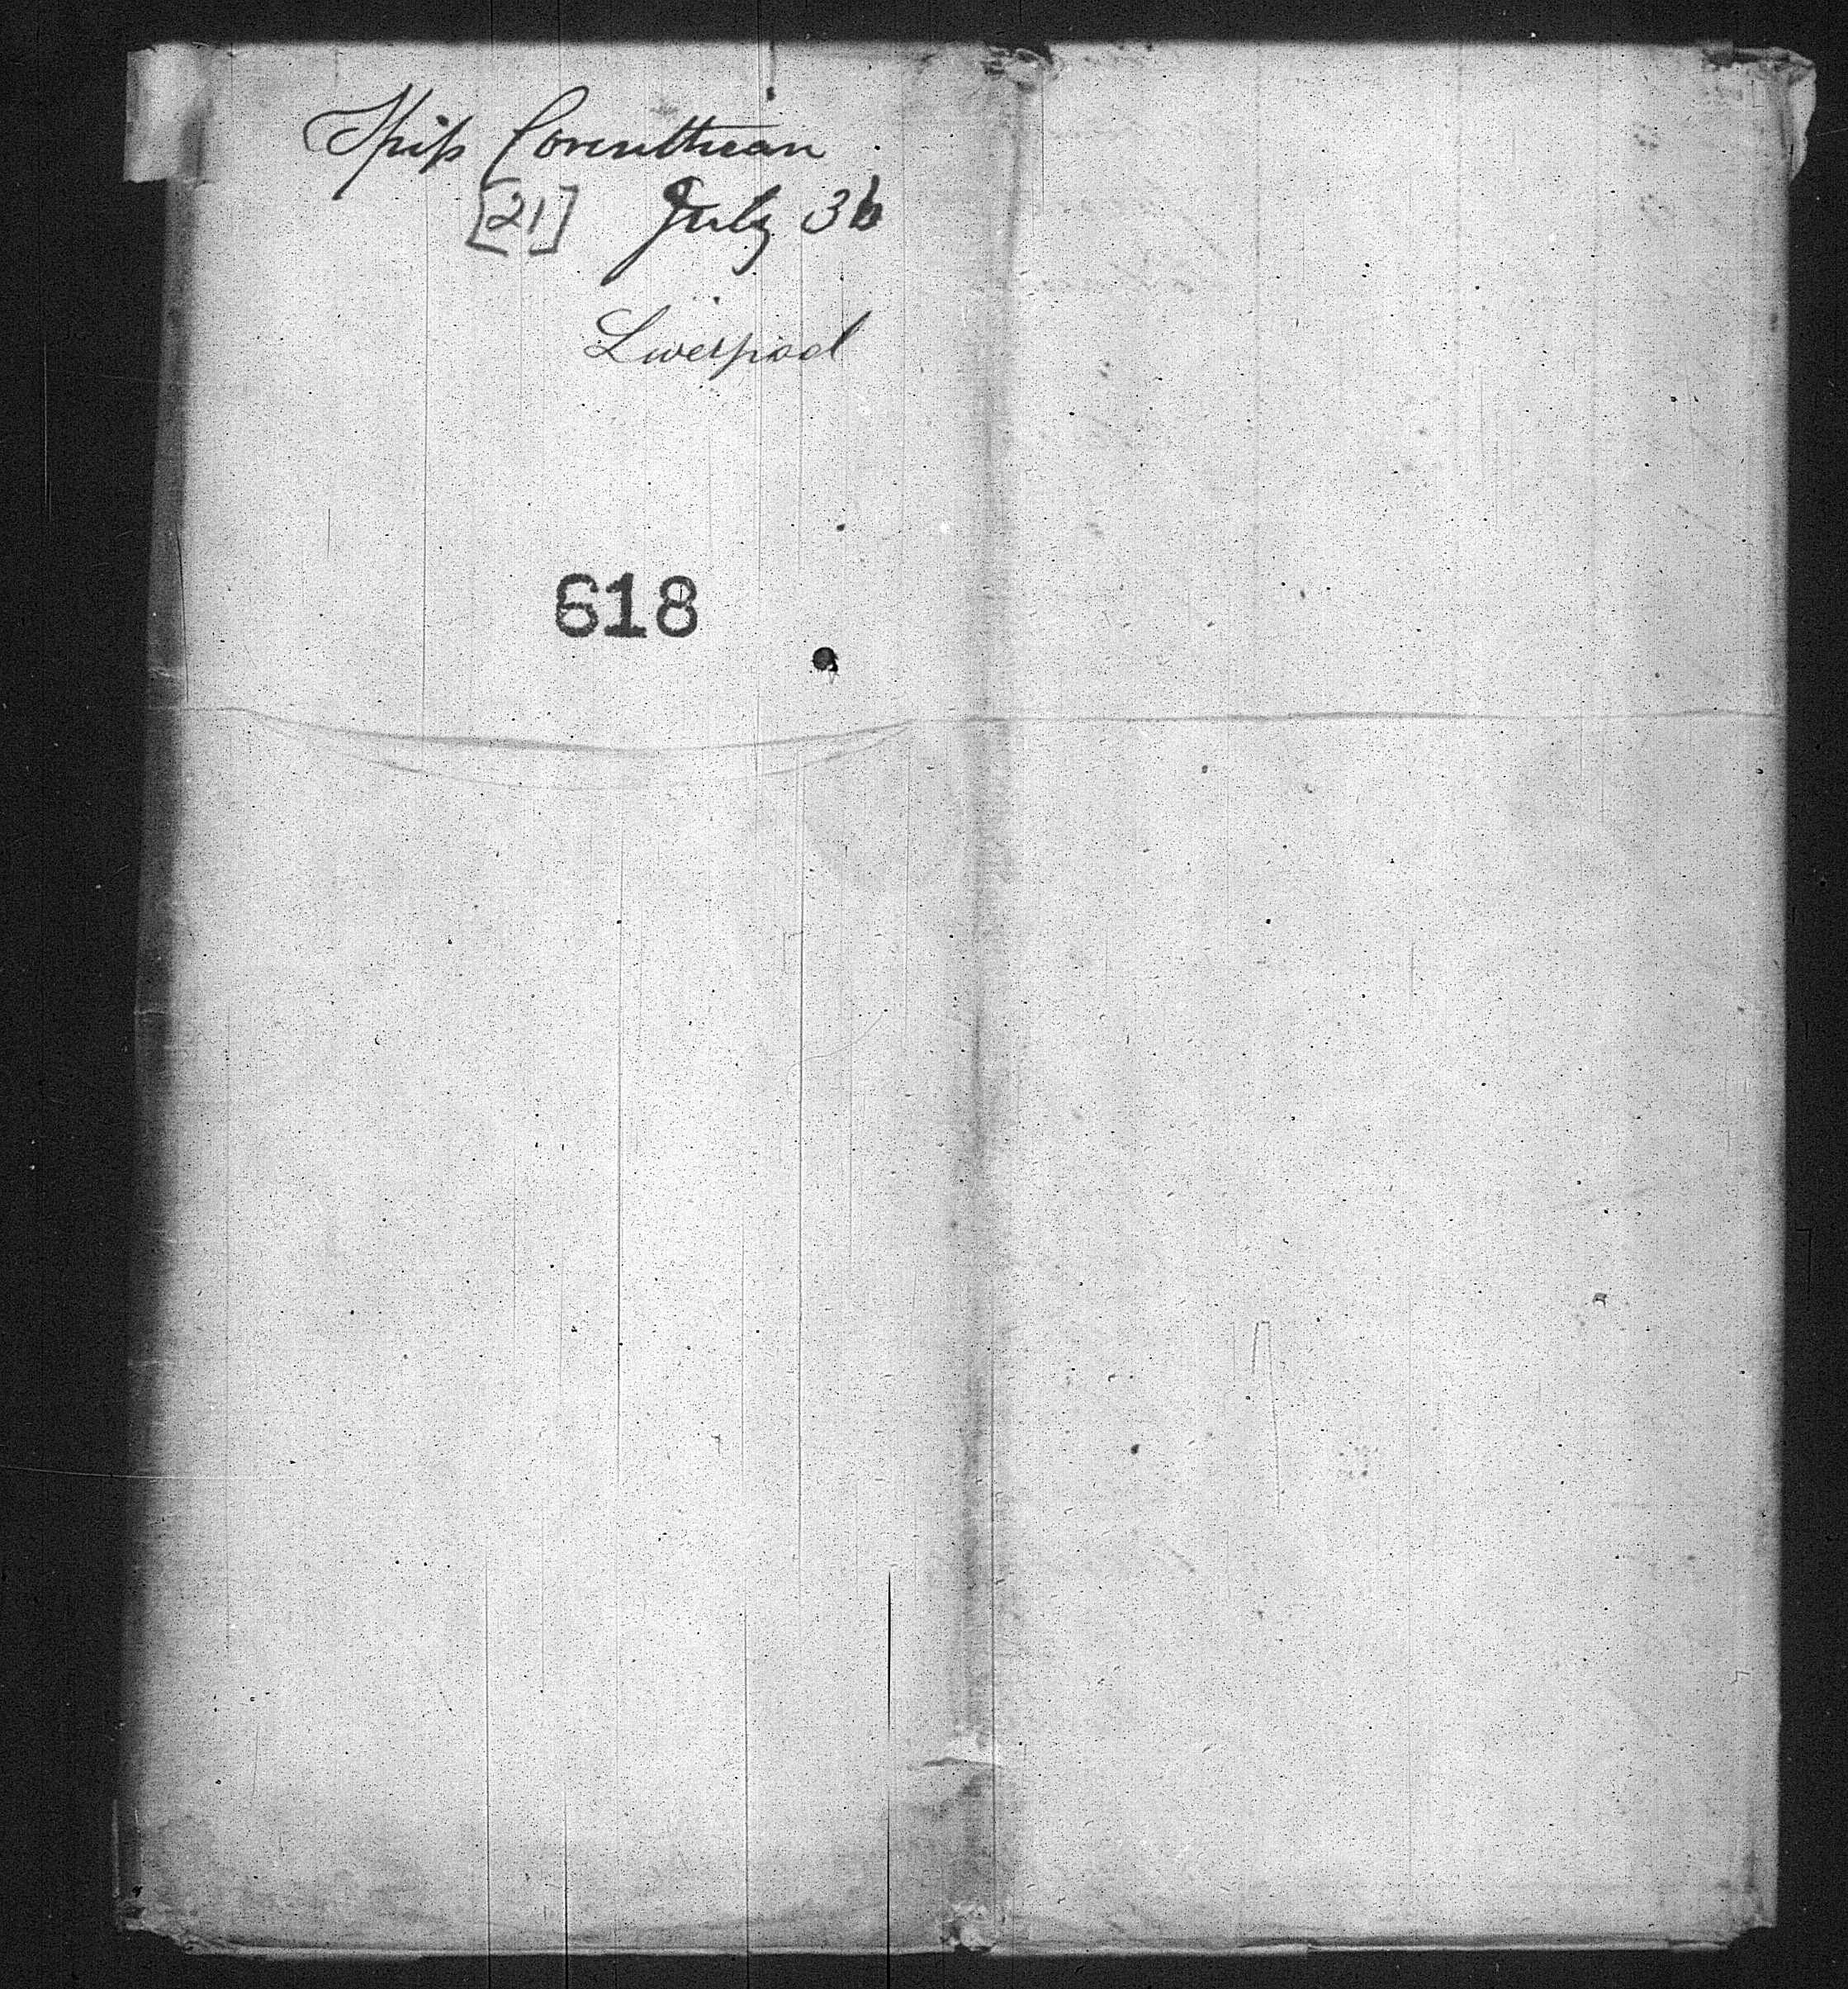 Ship Corinthian
[21] July 3
Liverpool
618